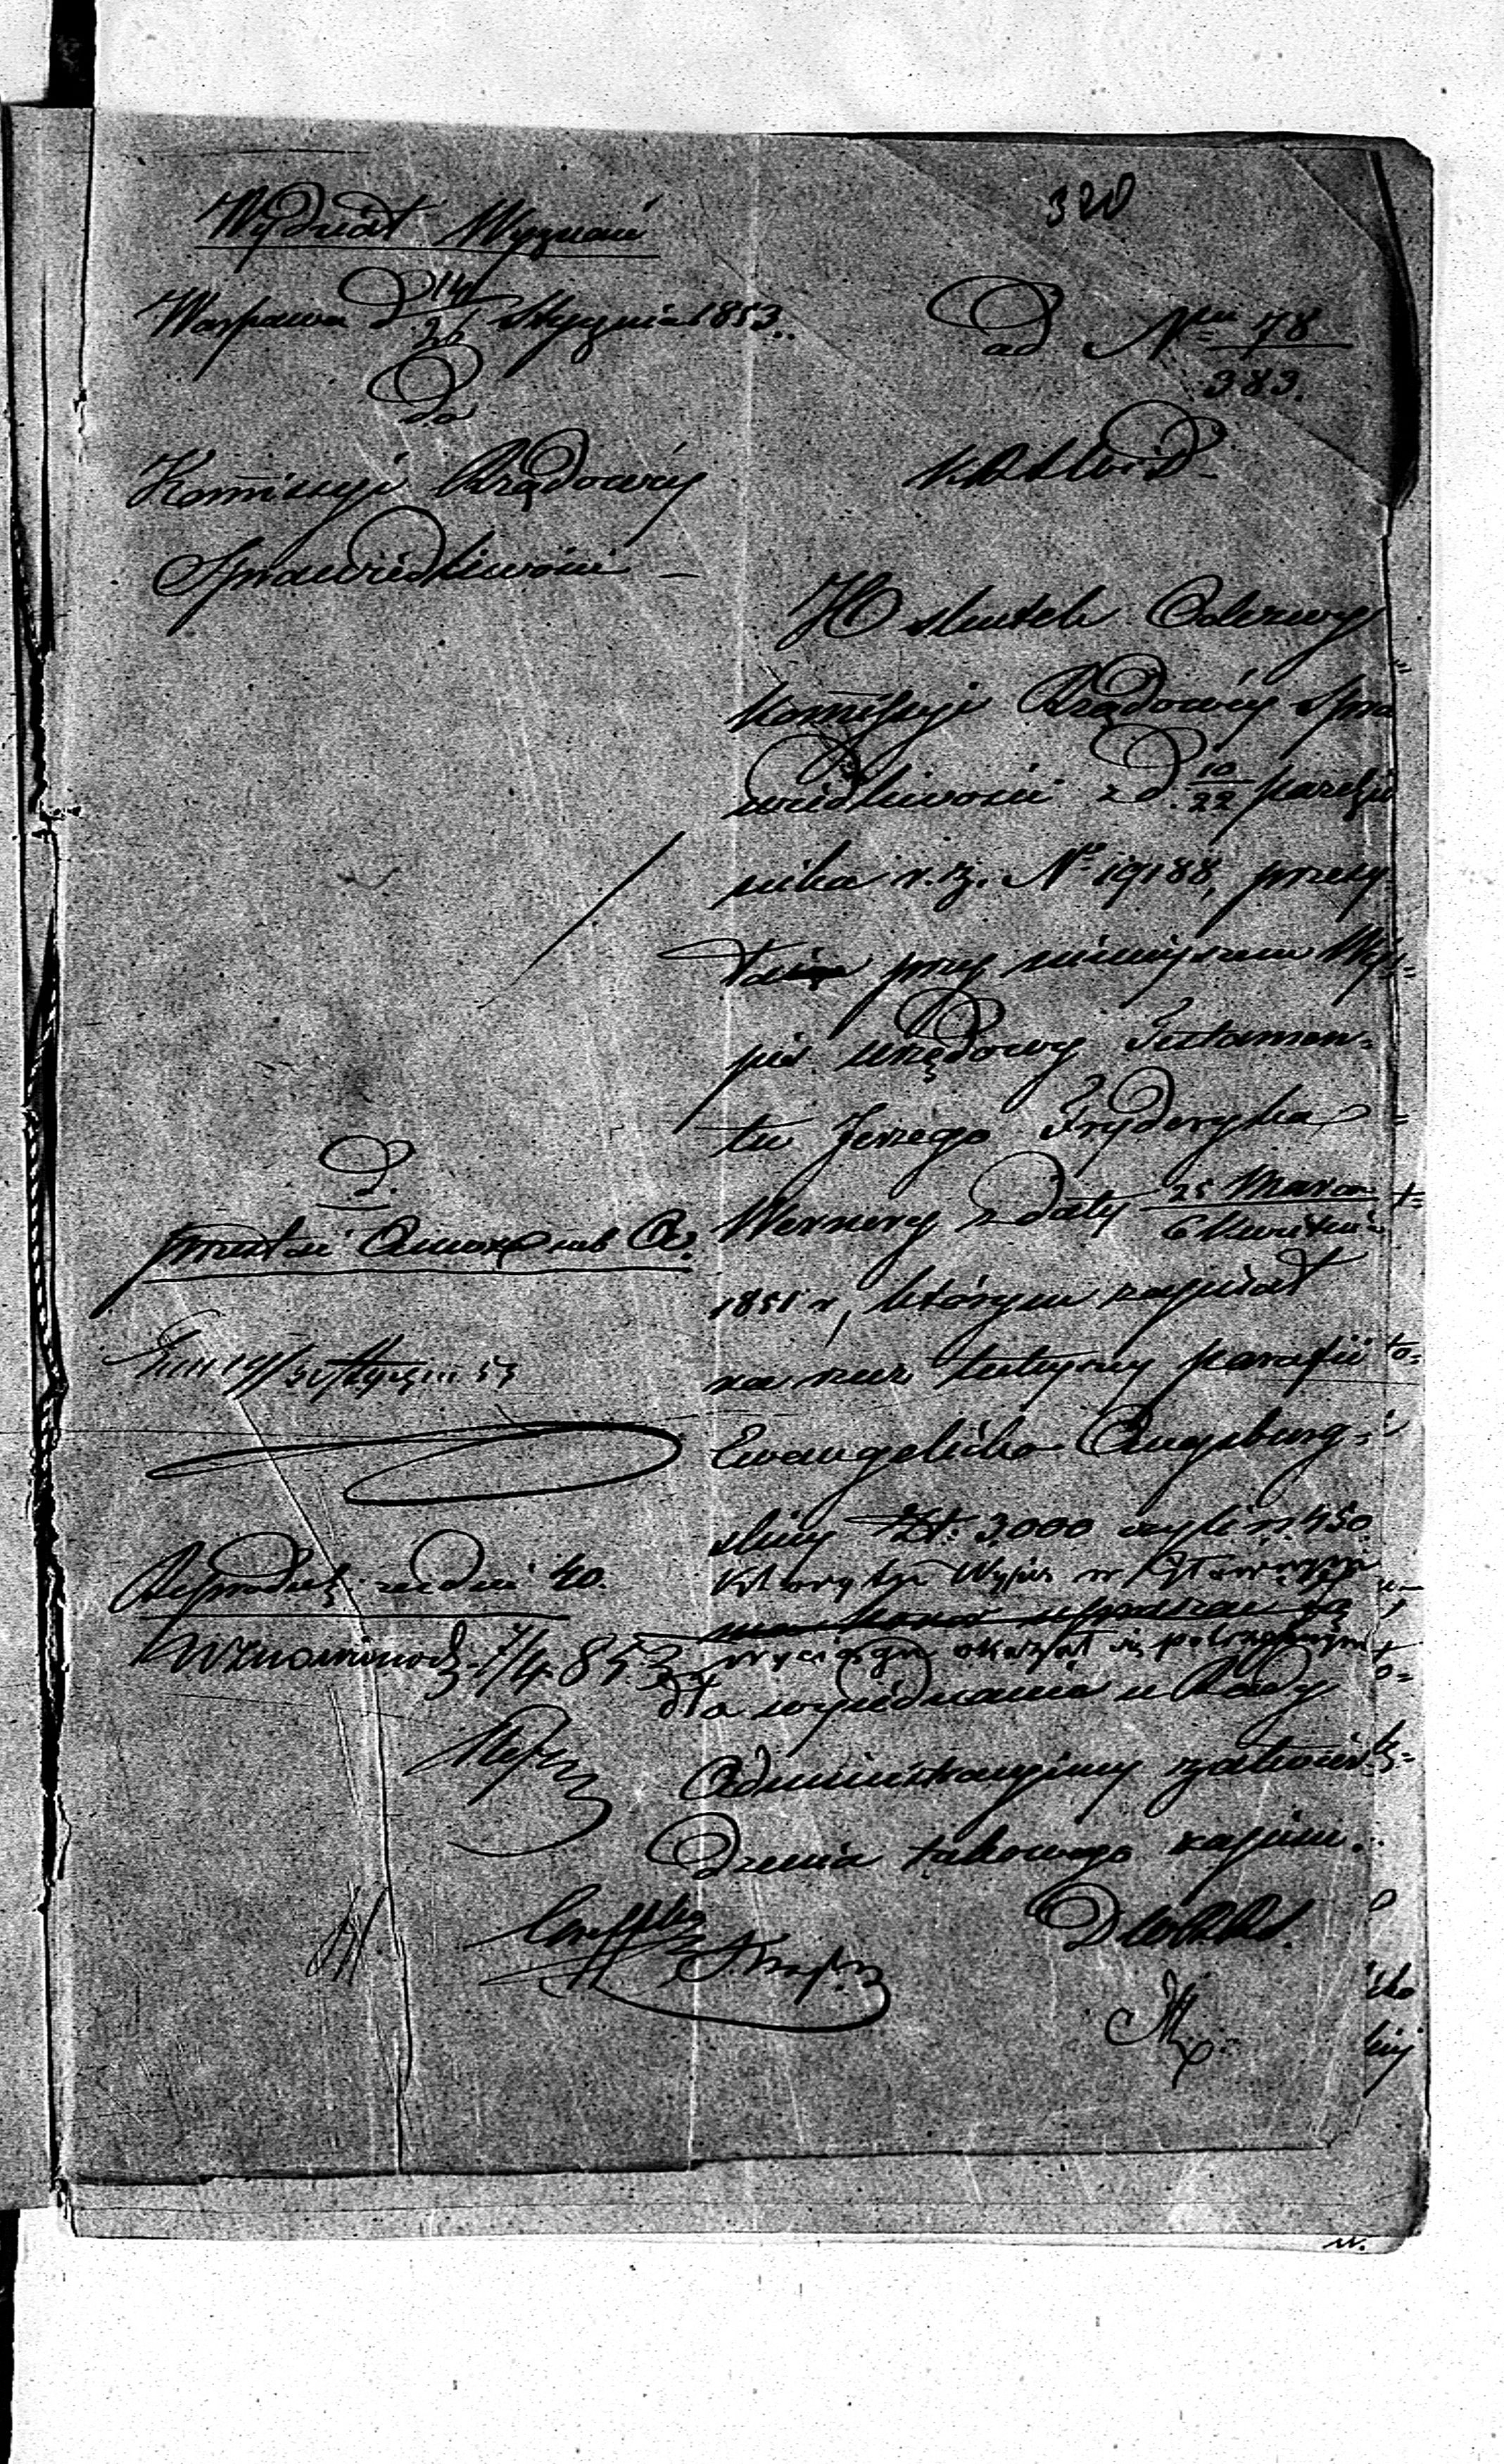 320
Wydział Wyznań
Warszawa d 14/26 Stycznia 1853.
ad Nru 78/383.
Do
Kommissyi Rządowéy
Sprawiedliwości
W skutek Odezwy
Kommissyi Rządowéy Spra
wiedliwości z d. 10/22 paździer
nika r. z. Nº 19188, przesy
przy niniejszem Wy
pis urzędowy Testamen-
tu Jerzego Fryderyka
Wernery z daty 25 Marca / 6 Kwietnia
1851 r, którym zapisał
na rzecz tutejszej parafii
Ewangelicko Augsburg-
skiej Zł: 3000 czyli rs. 450.
który to Wypis w
wyciągu okazał się potrzebnym
dla wyjednania u Rady
Administracyjnéy zatwier
dzenia takowego zapisu.
D.
Reprodukt. za dni 40.
Wznowiono d. 7/4 853